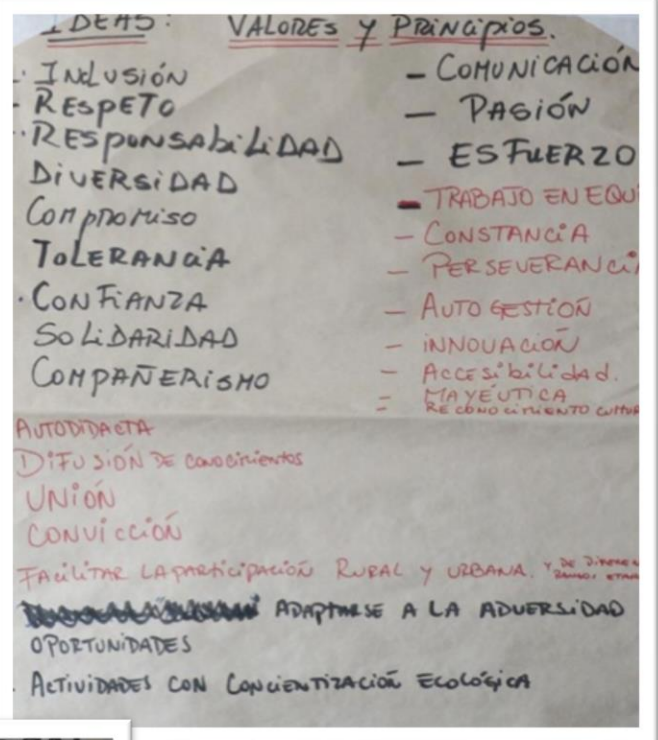 IDEAS: VALORES y PRINCIPIOS.
· INCLUSIÓN
- RESPETO
· RESPONSABILIDAD
DIVERSIDAD
COMPROMISO
TOLERANCIA
· CONFIANZA
SOLIDARIDAD
COMPAÑERISMO
- COMUNICACIÓN
- PASIÓN
- ESFUERZO
- TRABAJO EN EQUI
- CONSTANCIA
- PERSEVERANCI
- AUTOGESTIÓN
- INNOVACIÓN
- ACCESIBILIDAD.
- MAYÉUTICA
- RECONOCIMIENTO CULTUR
AUTODIDACTA
DIFUSIÓN DE CONOCIMIENTOS
UNIÓN
CONVICCIÓN
FACILITAR LA PARTICIPACIÓN RURAL Y URBANA. Y DE
ADAPTARSE A LA ADVERSIDAD
OPORTUNIDADES
· ACTIVIDADES CON CONCIENTIZACIÓN ECOLÓGICA